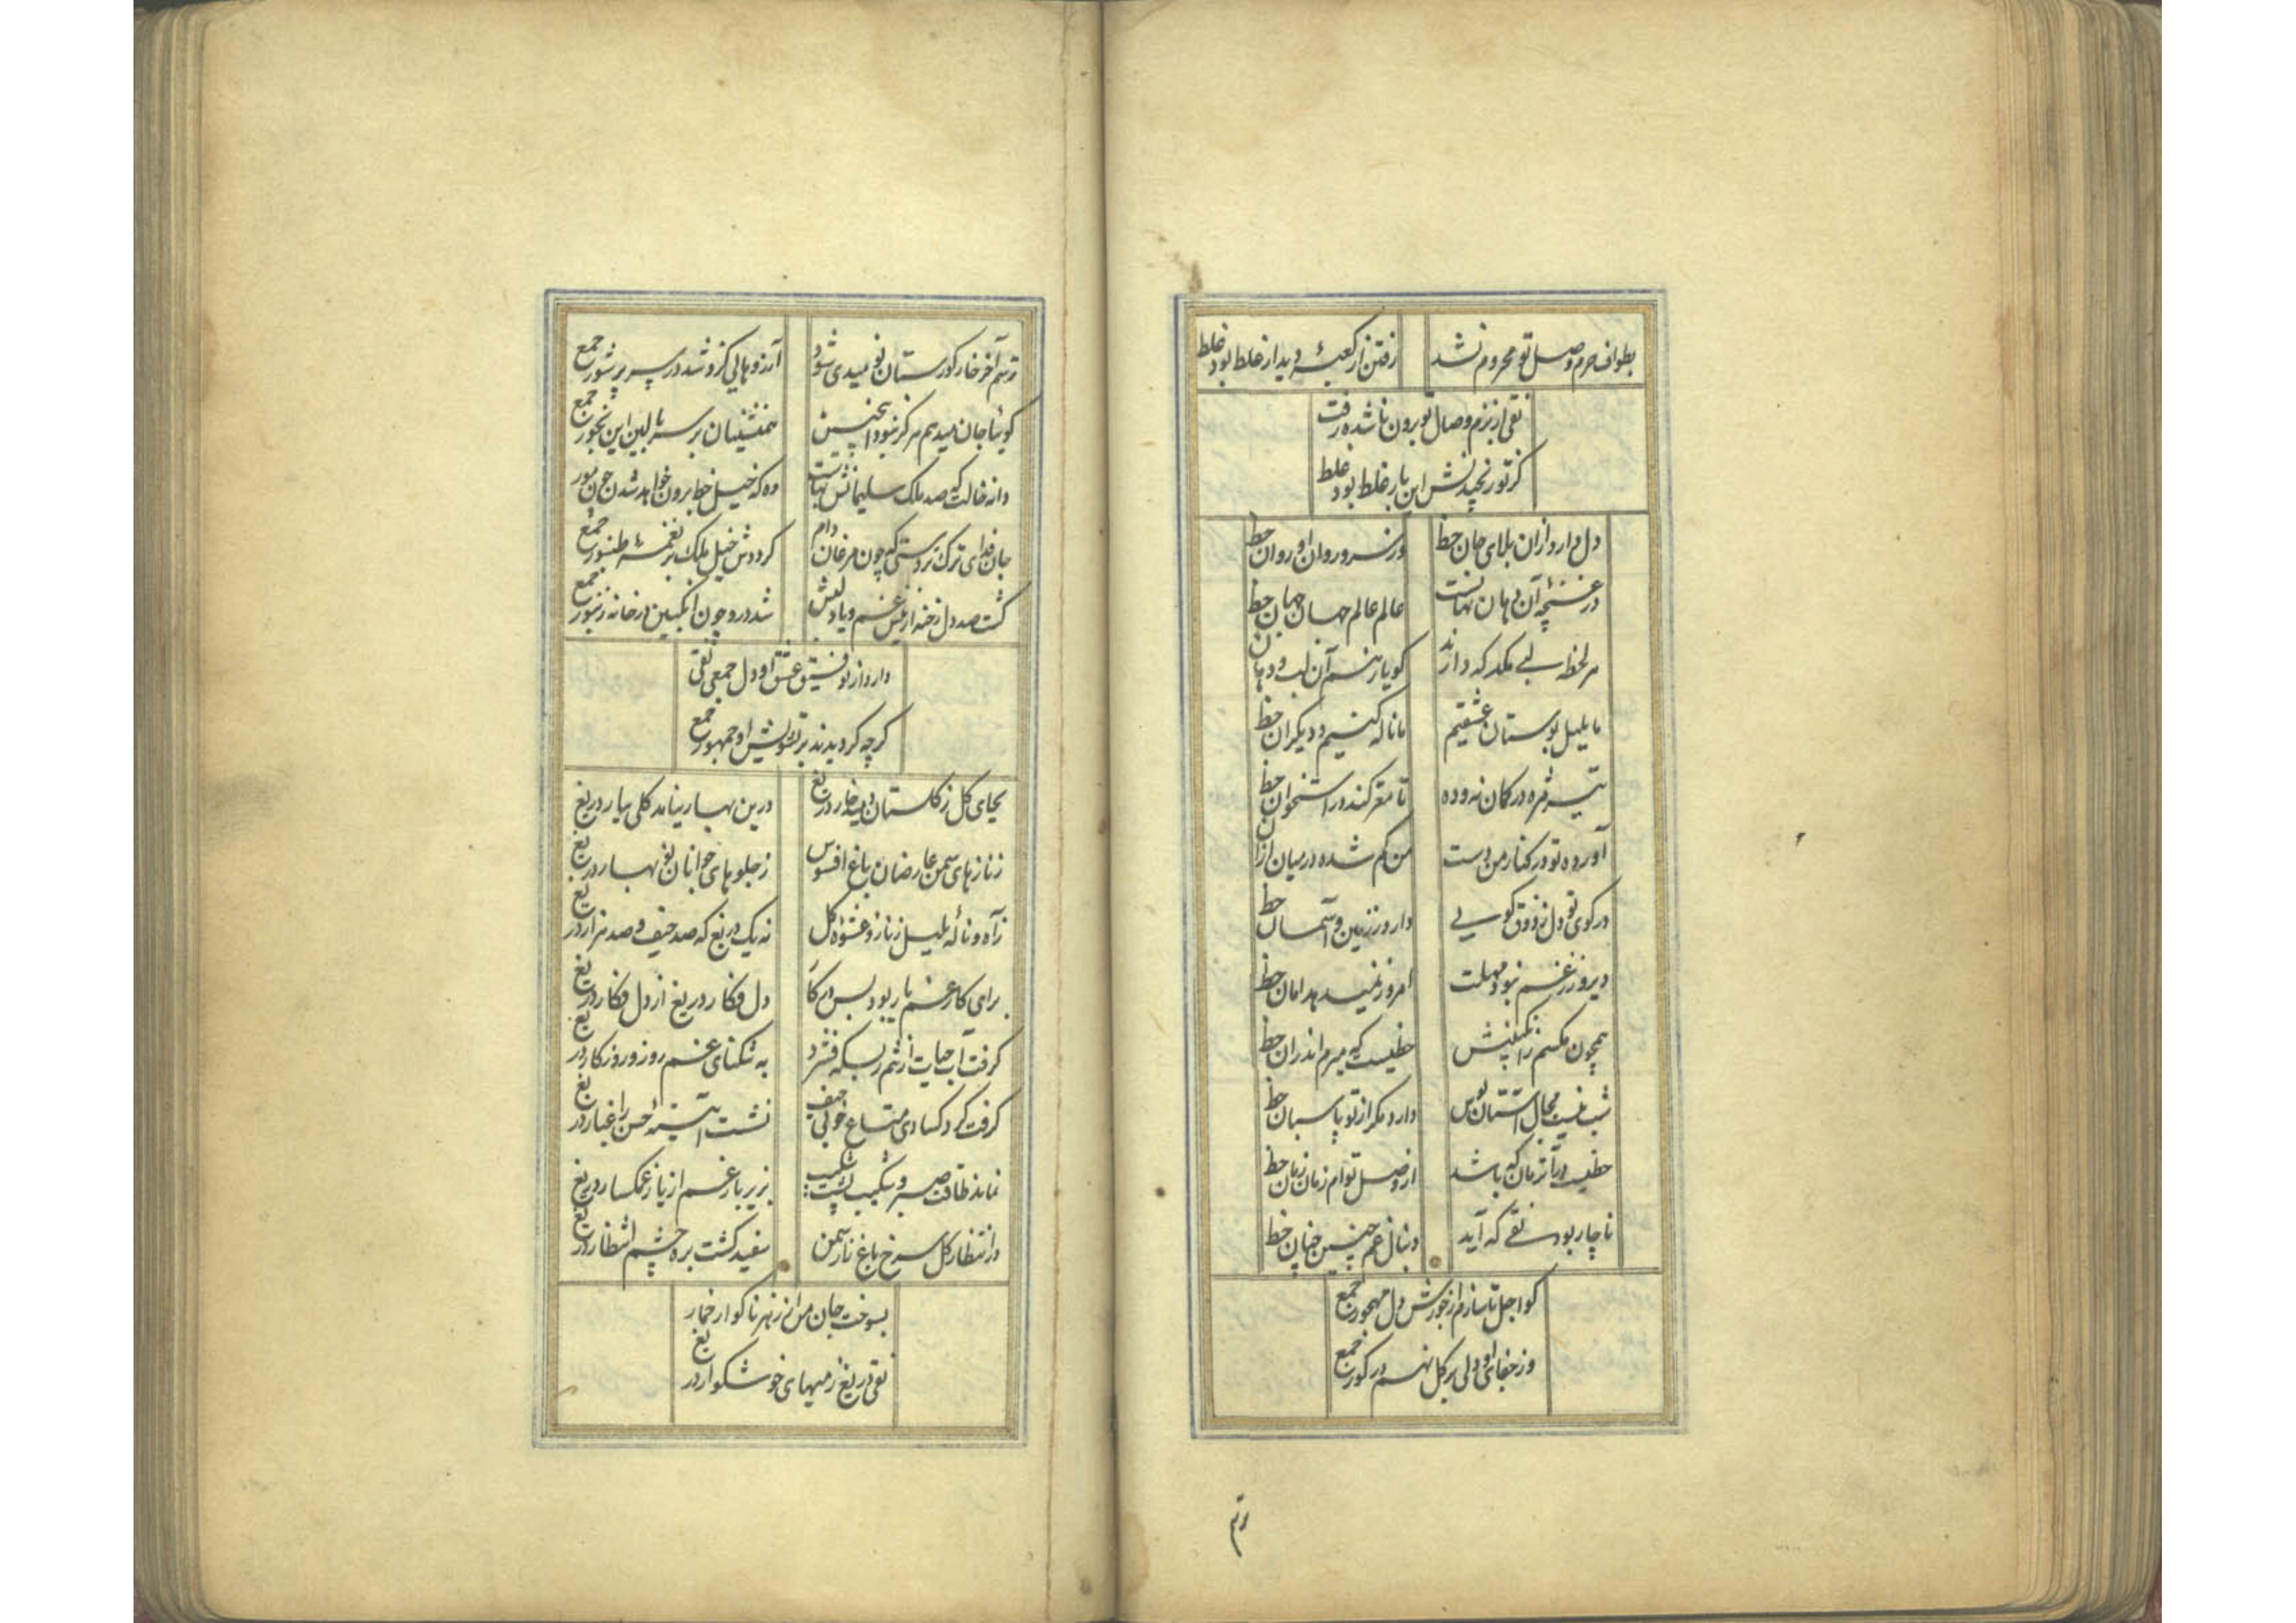 بطواف حرم وصل تو محروم نشد
رفتن از کعبهٔ دیدار غلط بود غلط
نقی از بزم وصال تو برون ناشده رفت
گر تو رنجیدنش این بار غلط بود غلط
دل دارد ازان بلای جان حظ
وز سرو روان او روان حظ
در غنچهٔ آن دهان نهانست
عالم عالم جهان جهان حظ
هر لحظه لبی مکد که دارند
گویا ز هم آن لب و دهان
ما بلبل بوستان عشقیم
ما ناله کنیم و دیگران حظ
تیر مژه در کمان نه و ده
تا مغز کند در استخوان حظ
آورده تو در کنار من دست
من گم شده در میان ازان
در کوی تو دل ز ذوق گویی
دارد ز زمین و آسمان حظ
دیروز ز غم نبود مهلت
امروز نمیدهد امان حظ
همچون مگسم ز انگبینش
حظیست که میرم اندران حظ
شب نیست مجال آستان بوس
دارد مگر از تو پاسبان حظ
حظیست در آن زمان که باشد
از وصل توام زمان زمان حظ
ناچار بود نقی که آید
دنبال غم چنین چنان حظ
کو اجل تا سازم از جورش دل مهجور جمع
وز جفای او دلی بر گل نهم در گور جمع
ترسم
ترسم آخر خار گورستان نومیدی شود
آرزوهایی کزو شد در سر پر شور جمع
گوئیا جان میدهم هرگز نبود اینچنین
همنشینان بر سر بالین این رنجور جمع
دانه خالت که صد ملک سلیمانش بهاست
وه که خیل خط برون خواهد شدن چون مور
جان فدای ترک سرمستی که چون مرغان دام
گرددش خیل ملک بر نغمهٔ طنبور جمع
گشت صد دل رخنه از نیش غم و یاد لبش
شد درو چون انگبین در خانه زنبور جمع
دارد از توفیق عشق او دل جمعی نقی
گرچه گردیدند بر تشویش او جمهور جمع
بجای گل ز گلستان دمیده خار دریغ
درین بهار نیامد گلی ببار دریغ
ز نازهای سمن عارضان باغ افسوس
ز جلوهای جوانان نوبهار دریغ
ز آه و نالهٔ بلبل ز ناز و عشوه گل
نه یک دریغ که صد حیف و صد هزار دریغ
برای کار غم یار بود بس دل کا
دل فکار دریغ از دل فکار دریغ
گرفت آب حیات از ثم ز بسکه فشرد
به تنگنای غم روز و روزگار دریغ
گرفت گرد کسادی متاع خوبی حیف
نشست آینهٔ حسن را غبار دریغ
نماند طاقت صبر و شکیب پشت شکیب
بزیر بار غم از یار غمگسار دریغ
در انتظار گل سرخ باغ ناز سمن
سفید گشت بره چشم انتظار دریغ
بسوخت جان من از زهر ناگوار خمار
نقی دریغ ز میهای خوشگوار دریغ